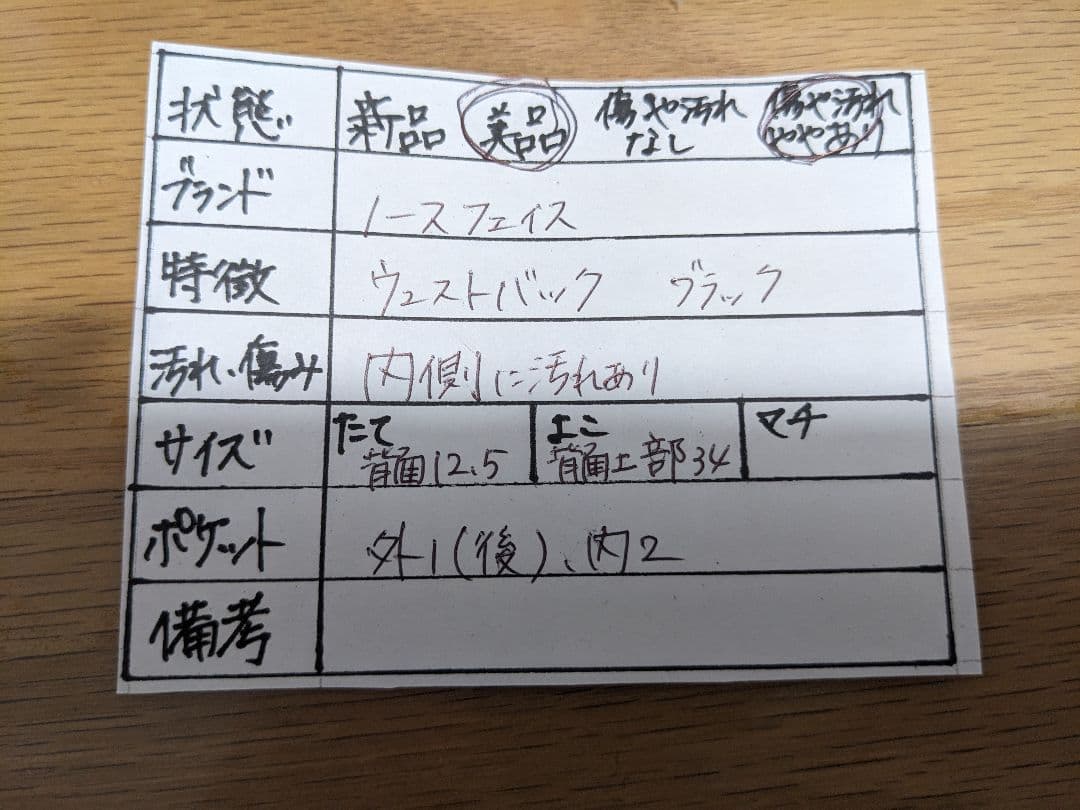 状態 新品 美品 傷や汚れなし 傷や汚れややあり
ブランド ノースフェイス
特徴 ウェストバック ブラック
汚れ、傷み 内側に汚れあり
サイズ たて 背面12.5 よこ 背面上部34 マチ
ポケット 外1(後)、内2
備考